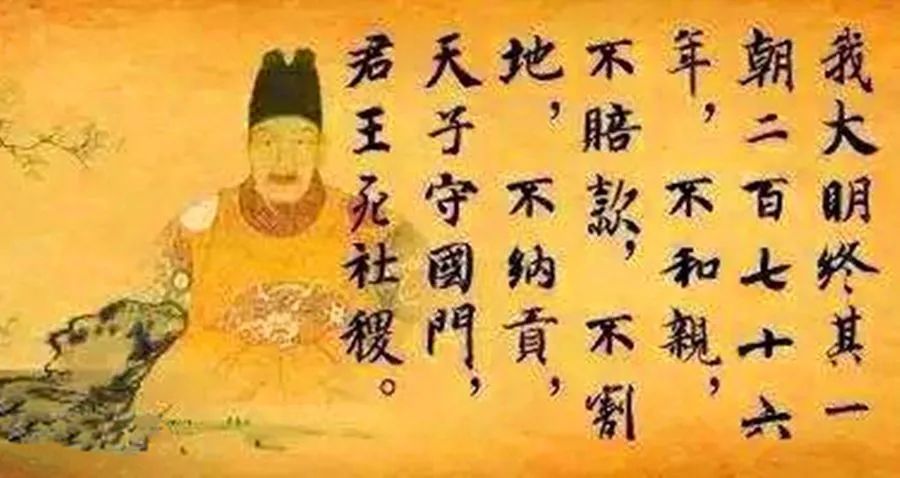 我大明终其一
朝二百七十六
年，不和親，
不賠款，不割
地，不納貢，
天子守國門，
君王死社稷。